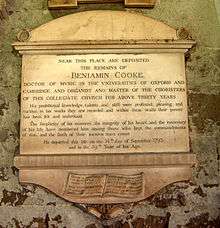 NEAR THIS PLACE ARE DEPOSITED
THE REMAINS OF
BENJAMIN COOKE,
DOCTOR OF MUSIC IN THE UNIVERSITIES OF OXFORD AND
CAMBRIDGE AND ORGANIST AND MASTER OF THE CHORISTERS
OF THIS COLLEGIATE CHURCH FOR ABOVE THIRTY YEARS
His professional knowledge, talents and skill were profound, pleasing and
in his works they are recorded and within these walls their power
has been felt and
The simplicity of his manners, the integrity of his heart and the innocency
of his life have numbered him among those who kept the commandments
of and the faith of their saviour Jesus Christ
He departed this life on the 14th day of September 1793
and in the year of his Age.